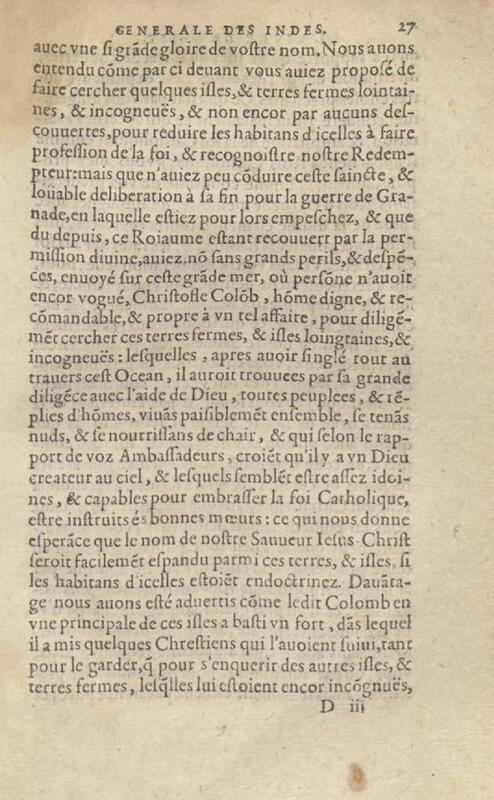 GENERALE DES INDES. 27
auec vne si grãde gloire de vostre nom. Nous auons
entendu cõme par ci deuant vous auiez proposé de
faire cercher quelques isles, & terres fermes lointai-
nes, & incogneuës, & non encor par aucuns des-
couuertes, pour reduire les habitans d'icelles à faire
profession de la foi, & recognoistre nostre Redem-
pteur: mais que n'auiez peu cõduire ceste saincte, &
loüable deliberation à sa fin pour la guerre de Gra-
nade, en laquelle estiez pour lors empeschez, & que
du depuis, ce Roiaume estant recouuert par la per-
mission diuine, auiez, nõ sans grands perils, & despẽ-
ces, enuoyé sur ceste grãde mer, où persõne n'auoit
encor vogué, Christofle Colõb, hõme digne, & re-
cõmandable, & propre à vn tel affaire, pour diligẽ-
mẽt cercher ces terres fermes, & isles loingtaines, &
incogneuës: lesquelles, apres auoir singlé tout au
trauers cest Ocean, il auroit trouuees par sa grande
diligẽce auec l'aide de Dieu, toutes peuplees, & rẽ-
plies d'hõmes, viuãs paisiblemẽt ensemble, se tenãs
nuds, & se nourrissans de chair, & qui selon le rap-
port de voz Ambassadeurs, croiẽt qu'il y a vn Dieu
createur au ciel, & lesquels semblẽt estre assez idoi-
nes, & capables pour embrasser la foi Catholique,
estre instruits és bonnes mœurs: ce qui nous donne
esperãce que le nom de nostre Sauueur Iesus-Christ
seroit facilemẽt espandu parmi ces terres, & isles, si
les habitans d'icelles estoiẽt endoctrinez. Dauãta-
ge nous auons esté aduertis cõme ledit Colomb en
vne principale de ces isles a basti vn fort, dãs lequel
il a mis quelques Chrestiens qui l'auoient suiui, tant
pour le garder, q̃ pour s'enquerir des autres isles, &
terres fermes, lesq̃lles lui estoient encor incõgnuës,
D iii